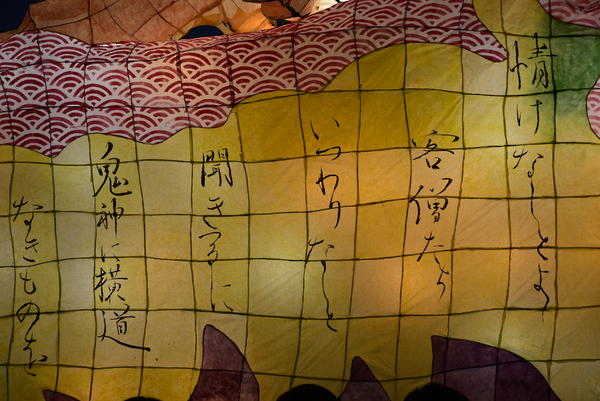 情けなしとよ
客僧たち
いつわりなしと
聞きつるに
鬼神に横道
なきものを